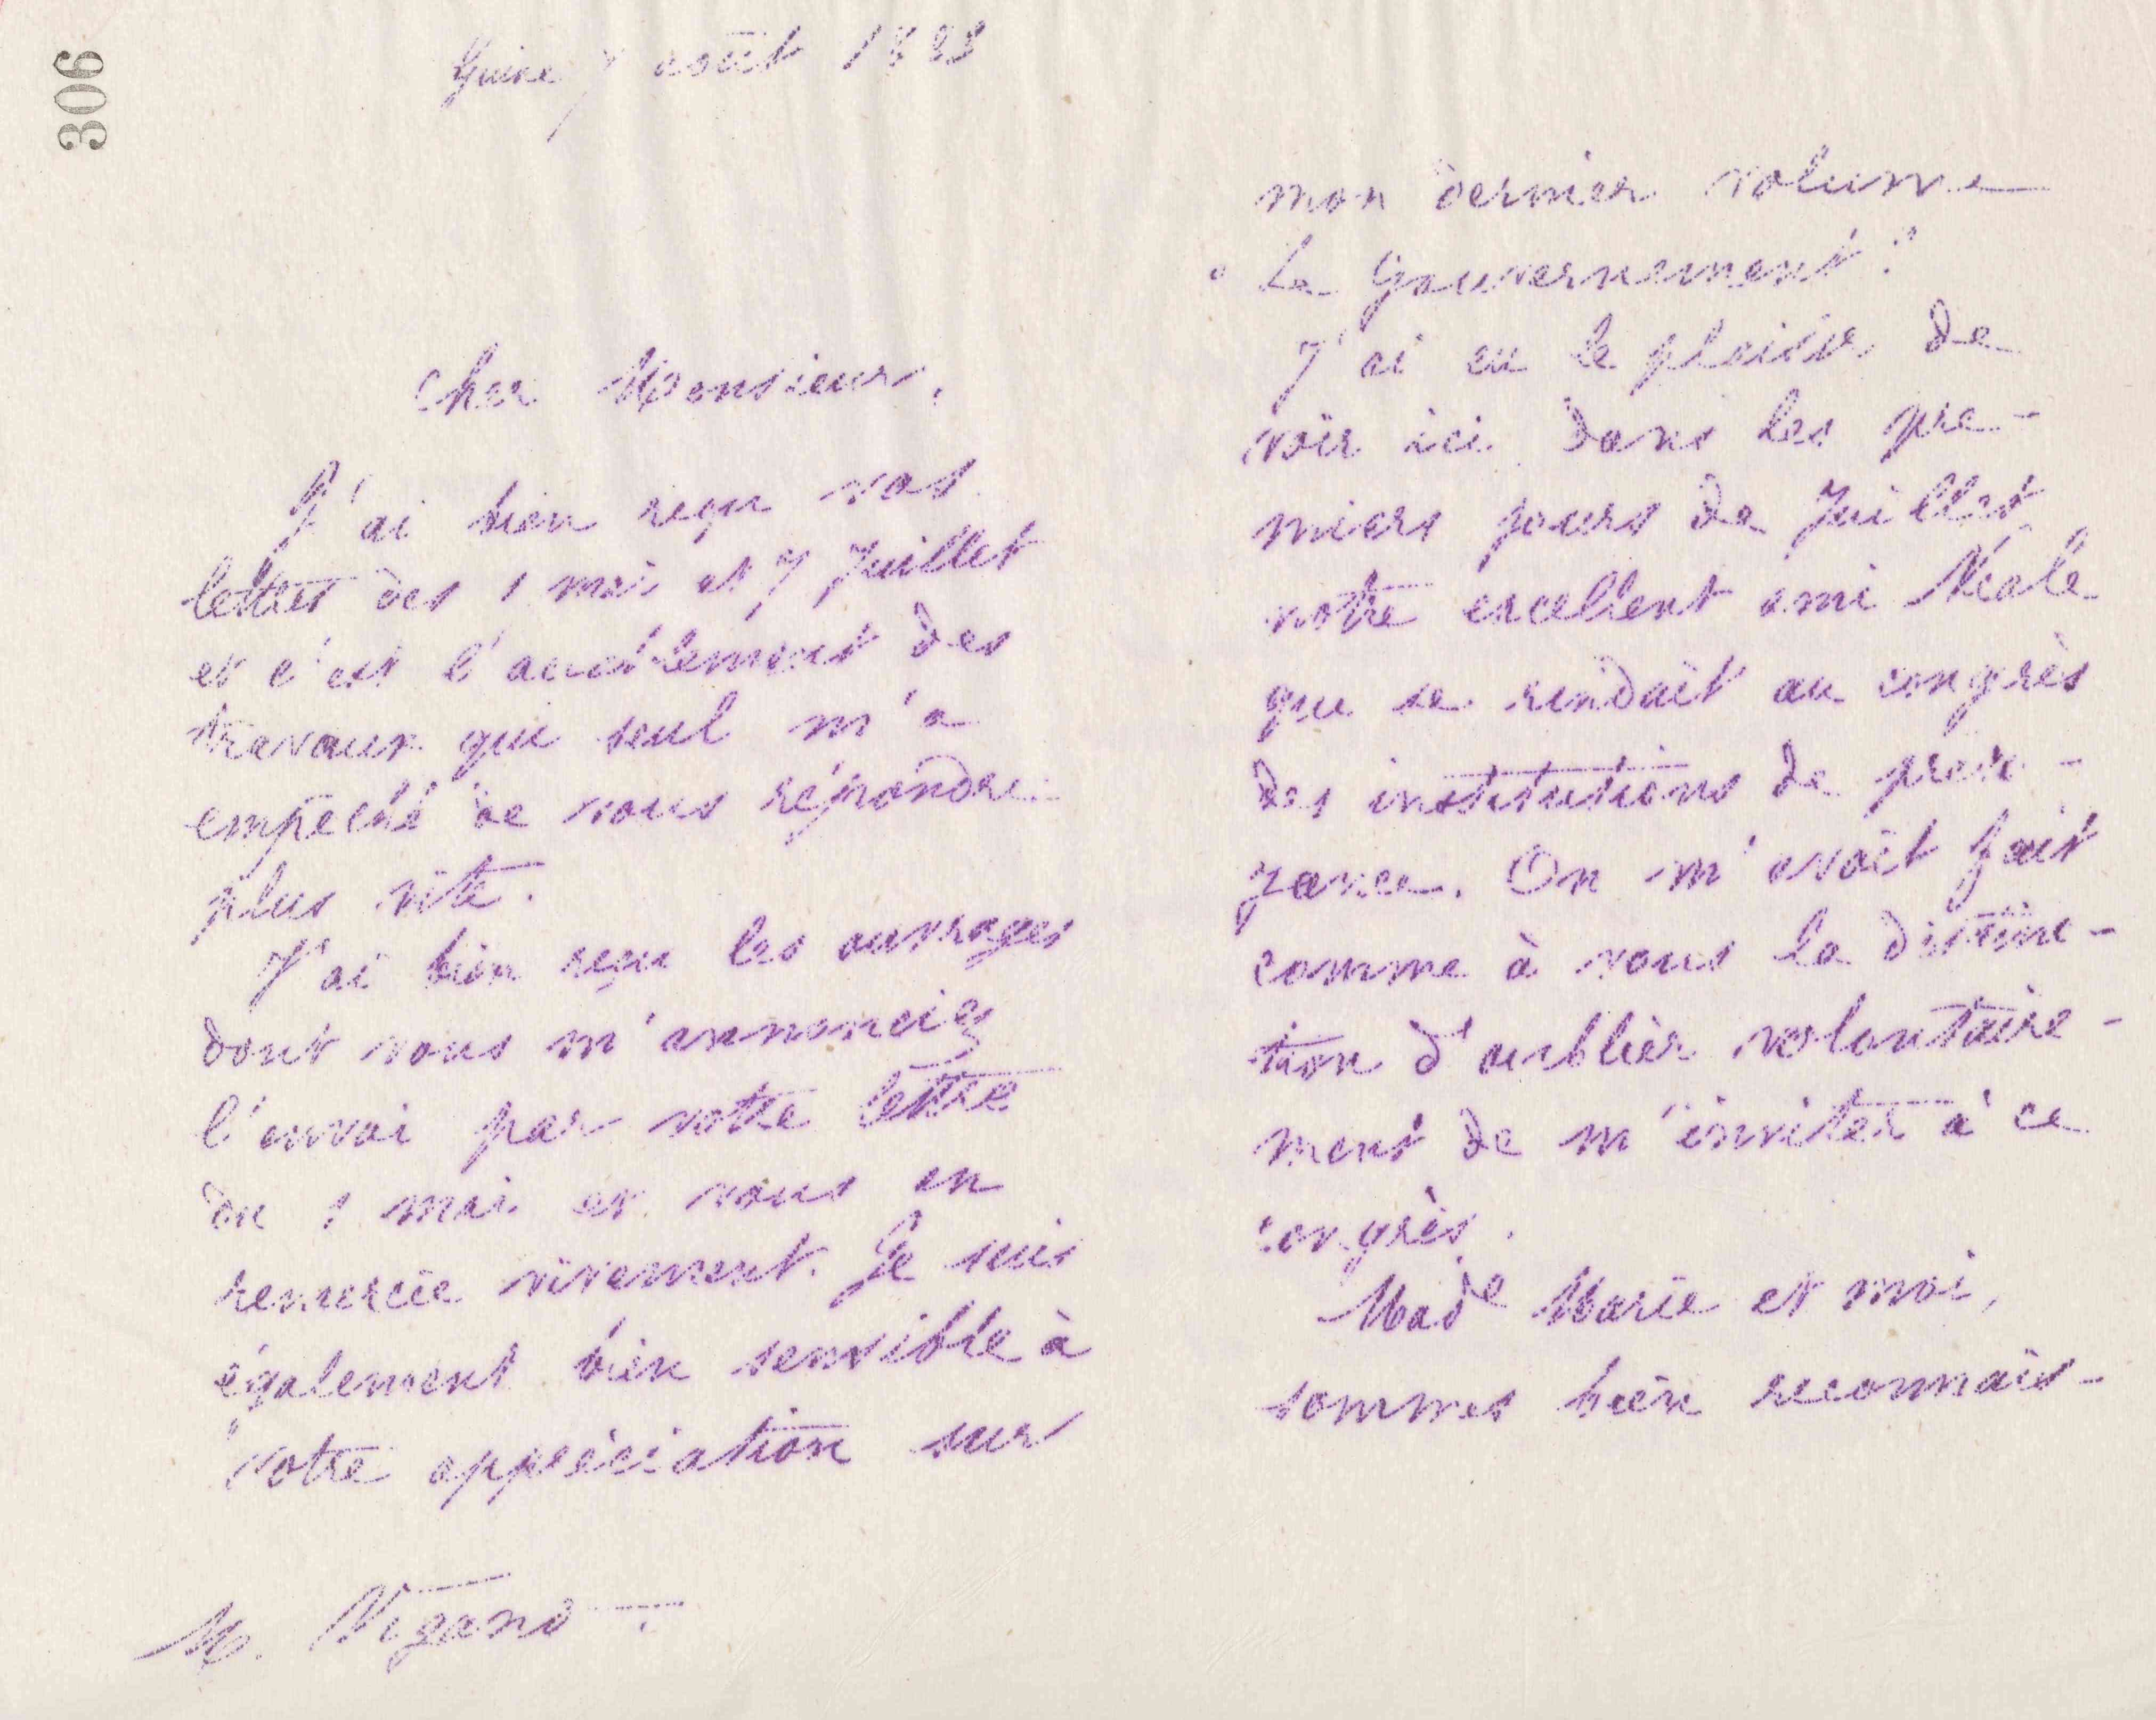 306
Guise 7 août 1883
Cher Monsieur,
J'ai bien reçu vos
lettres des 1 mai et 7 Juillet
et c'est l'accablement des
travaux qui seul m'a
empeché de vous répondre
plus vite.
J'ai bien reçu les ouvrages
dont vous m'annonciez
l'envoi par votre lettre
du 1 mai et vous en
remercie vivement. Je suis
également bien sensible à
votre appréciation sur
M. Vigano
mon dernier volume
"Le Gouvernement".
J'ai eu le plaisir de
voir ici dans les pre-
miers jours de Juillet
notre excellent ami Neale
que se rendait au congrès
des institutions de prévo-
yance. On m'avait fait
comme à vous la distinc-
tion d'oublier volontaire-
ment de m'inviter à ce
congrès.
Made Marie et moi,
sommes bien reconnais-